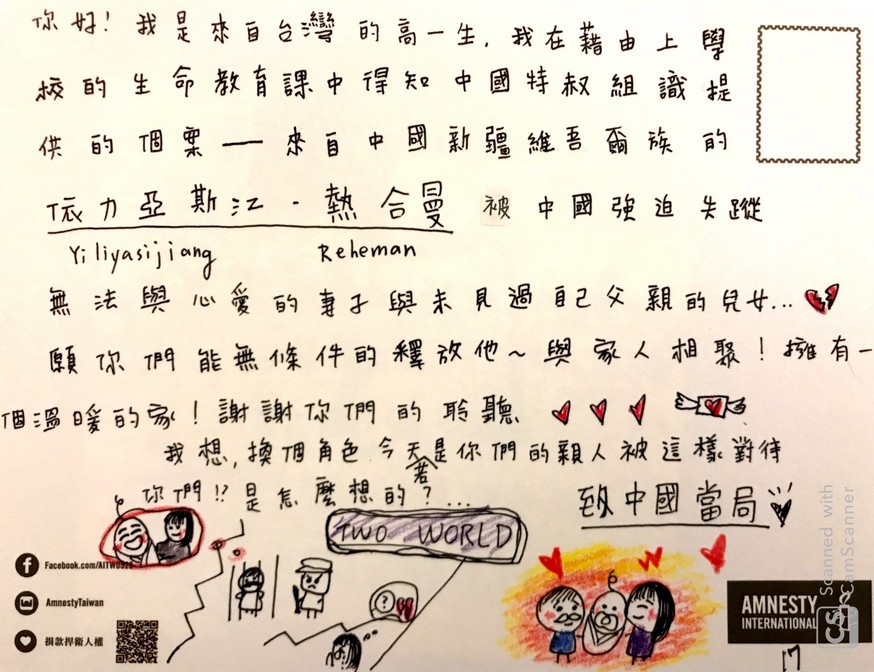 你好！我是來自台灣的高一生，我在藉由上學
校的生命教育課中得知中國特叔組識提
供的個案——來自中國新疆維吾爾族的
依力亞斯江·熱合曼 被中國強迫失蹤
Yiliyasijiang Reheman
無法與心愛的妻子與未見過自己父親的兒女...
願你們能無條件的釋放他~與家人相聚！擁有一
個溫暖的家！謝謝你們的聆聽
我想，換個角色今天若是你們的親人被這樣對待
你們!!是怎麼想的?...
致中國當局
TWO WORLD
?
Facebook.com/AITW0928
AmnestyTaiwan
捐款捍衛人權
AMNESTY
INTERNATIONAL
17
CS Scanned with
CamScanner